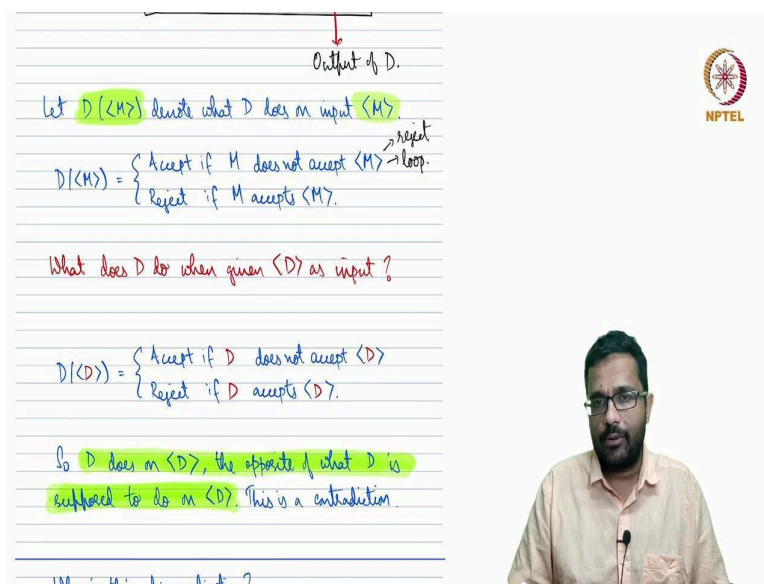 Output of D.
Let D(<M>) denote what D does on input <M>.
D(<M>) = { Accept if M does not accept <M> → reject → loop.
Reject if M accepts <M>.
What does D do when given <D> as input?
D(<D>) = { Accept if D does not accept <D>
Reject if D accepts <D>.
So D does on <D>, the opposite of what D is
supposed to do on <D>. This is a contradiction.
NPTEL